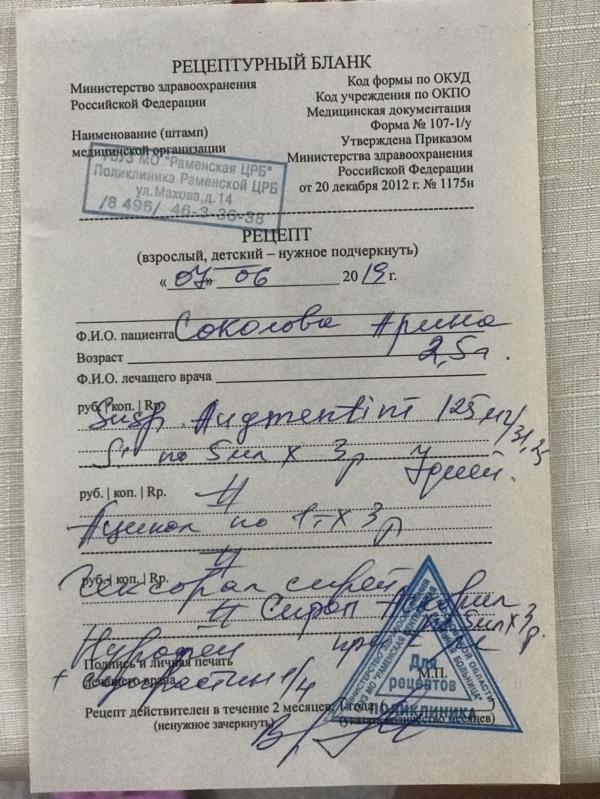 РЕЦЕПТУРНЫЙ БЛАНК
Министерство здравоохранения
Российской Федерации
Код формы по ОКУД
Код учреждения по ОКПО
Медицинская документация
Форма № 107-1/у
Утверждена Приказом
Министерства здравоохранения
Российской Федерации
от 20 декабря 2012 г. № 1175н
Наименование (штамп)
медицинской организации
ГБУЗ МО "Раменская ЦРБ"
Поликлиника Раменской ЦРБ
ул.Махова,д.14
/8 496/ 46-3-36-38
РЕЦЕПТ
(взрослый, детский – нужное подчеркнуть)
«07» 06 2019 г.
Ф.И.О. пациента Соколова Арина
Возраст 2,5 г.
Ф.И.О. лечащего врача
руб. | коп. | Rp.
Susp Augmentini 125 мг/31,25
S. по 5 мл х 3 р 7 дней.
руб. | коп. | Rp. #
Аципол по 1 т х 3 р
#
руб. | коп. | Rp.
Гексорал спрей
# Сироп по 5 мл х 3 р.
Нурофен при
Подпись и личная печать
лечащего врача
М.П.
+ Супрастин 1/4
Для рецептов
ПОЛИКЛИНИКА
Рецепт действителен в течение 2 месяцев, 1 года
(ненужное зачеркнуть)
(указать количество месяцев)